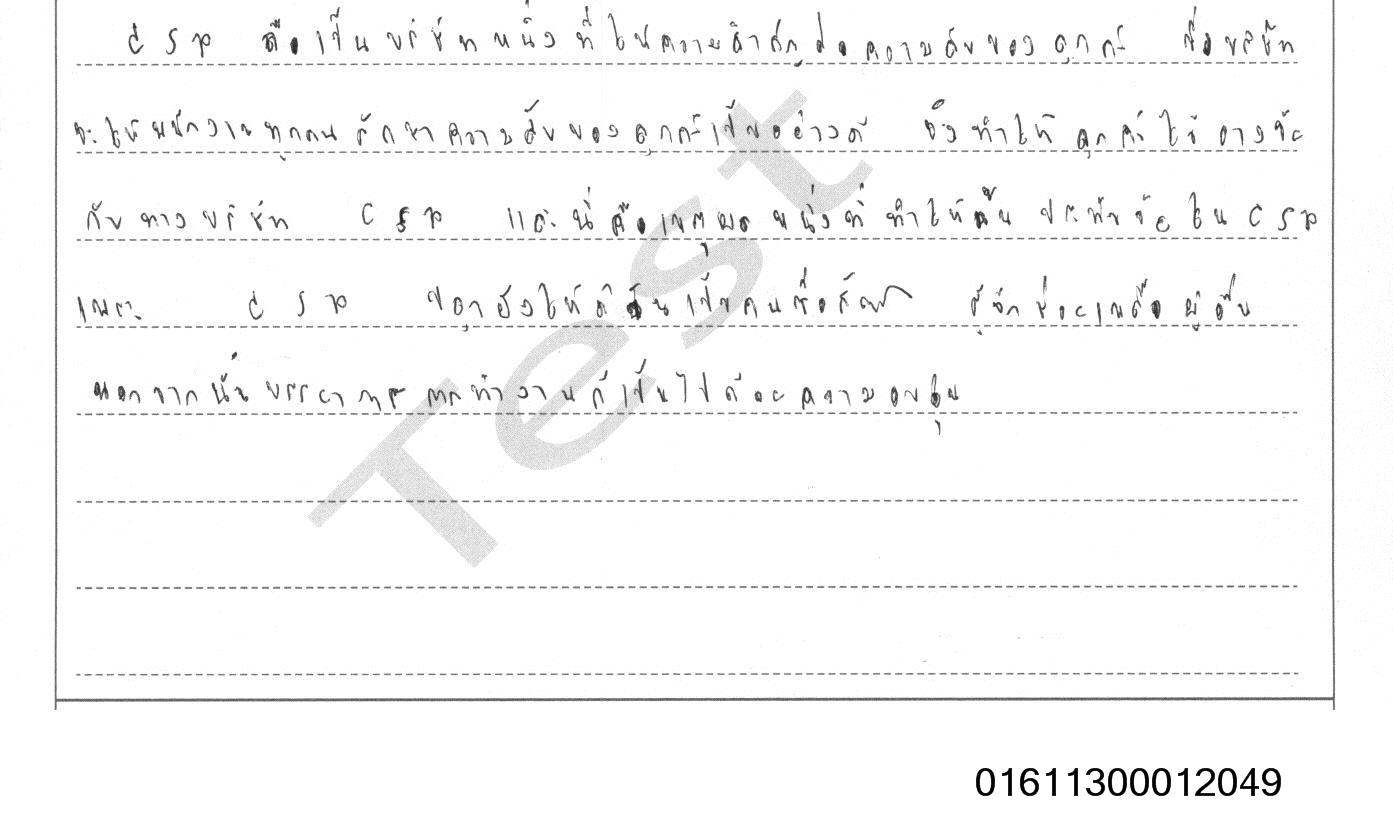 CSR คือเป็นบริษัทหนึ่งที่ให้ความสำคัญต่อความลับของลูกค้า ซึ่งบริษัท
จะให้พนักงานทุกคนรักษาความลับของลูกค้าเป็นอย่างดี จึงทำให้ลูกค้าไว้วางใจ
กับทางบริษัท CSR และนี่คือเหตุผลหนึ่งที่ทำให้ฉันประทับใจใน CSR
เพราะ CSR ยังให้ดิฉันเป็นคนซื่อสัตย์ รู้จักช่วยเหลือผู้อื่น
นอกจากนั้นบรรยากาศการทำงานก็เป็นไปด้วยความอบอุ่น
Test
01611300012049